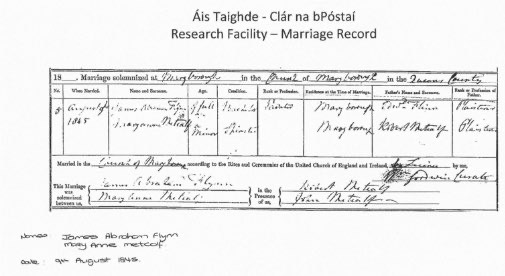 Áis Taighde - Clár na bPóstaí
Research Facility – Marriage Record
18 . Marriage solemnized at Maryborough in the Church of Maryborough in the Queens County
No. When Married. Name and Surname. Age. Condition. Rank or Profession. Residence at the Time of Marriage. Father's Name and Surname. Rank or Profession of Father.
8 August 9th James Abraham Flynn of full Maryborough Flinn
1845 Maryanne Metcalf Minor Spinster Maryborough Robert Metcalf
Married in the Church of Maryborough according to the Rites and Ceremonies of the United Church of England and Ireland, by me,
Godwin Curate
This Marriage was solemnized between us, James Abraham Flynn
Maryanne Metcalf
In the Presence of us, Robert Metcalf
John Metcalf
Names: James Abraham Flynn
Mary Anne Metcalf
Date: 9th August 1845.